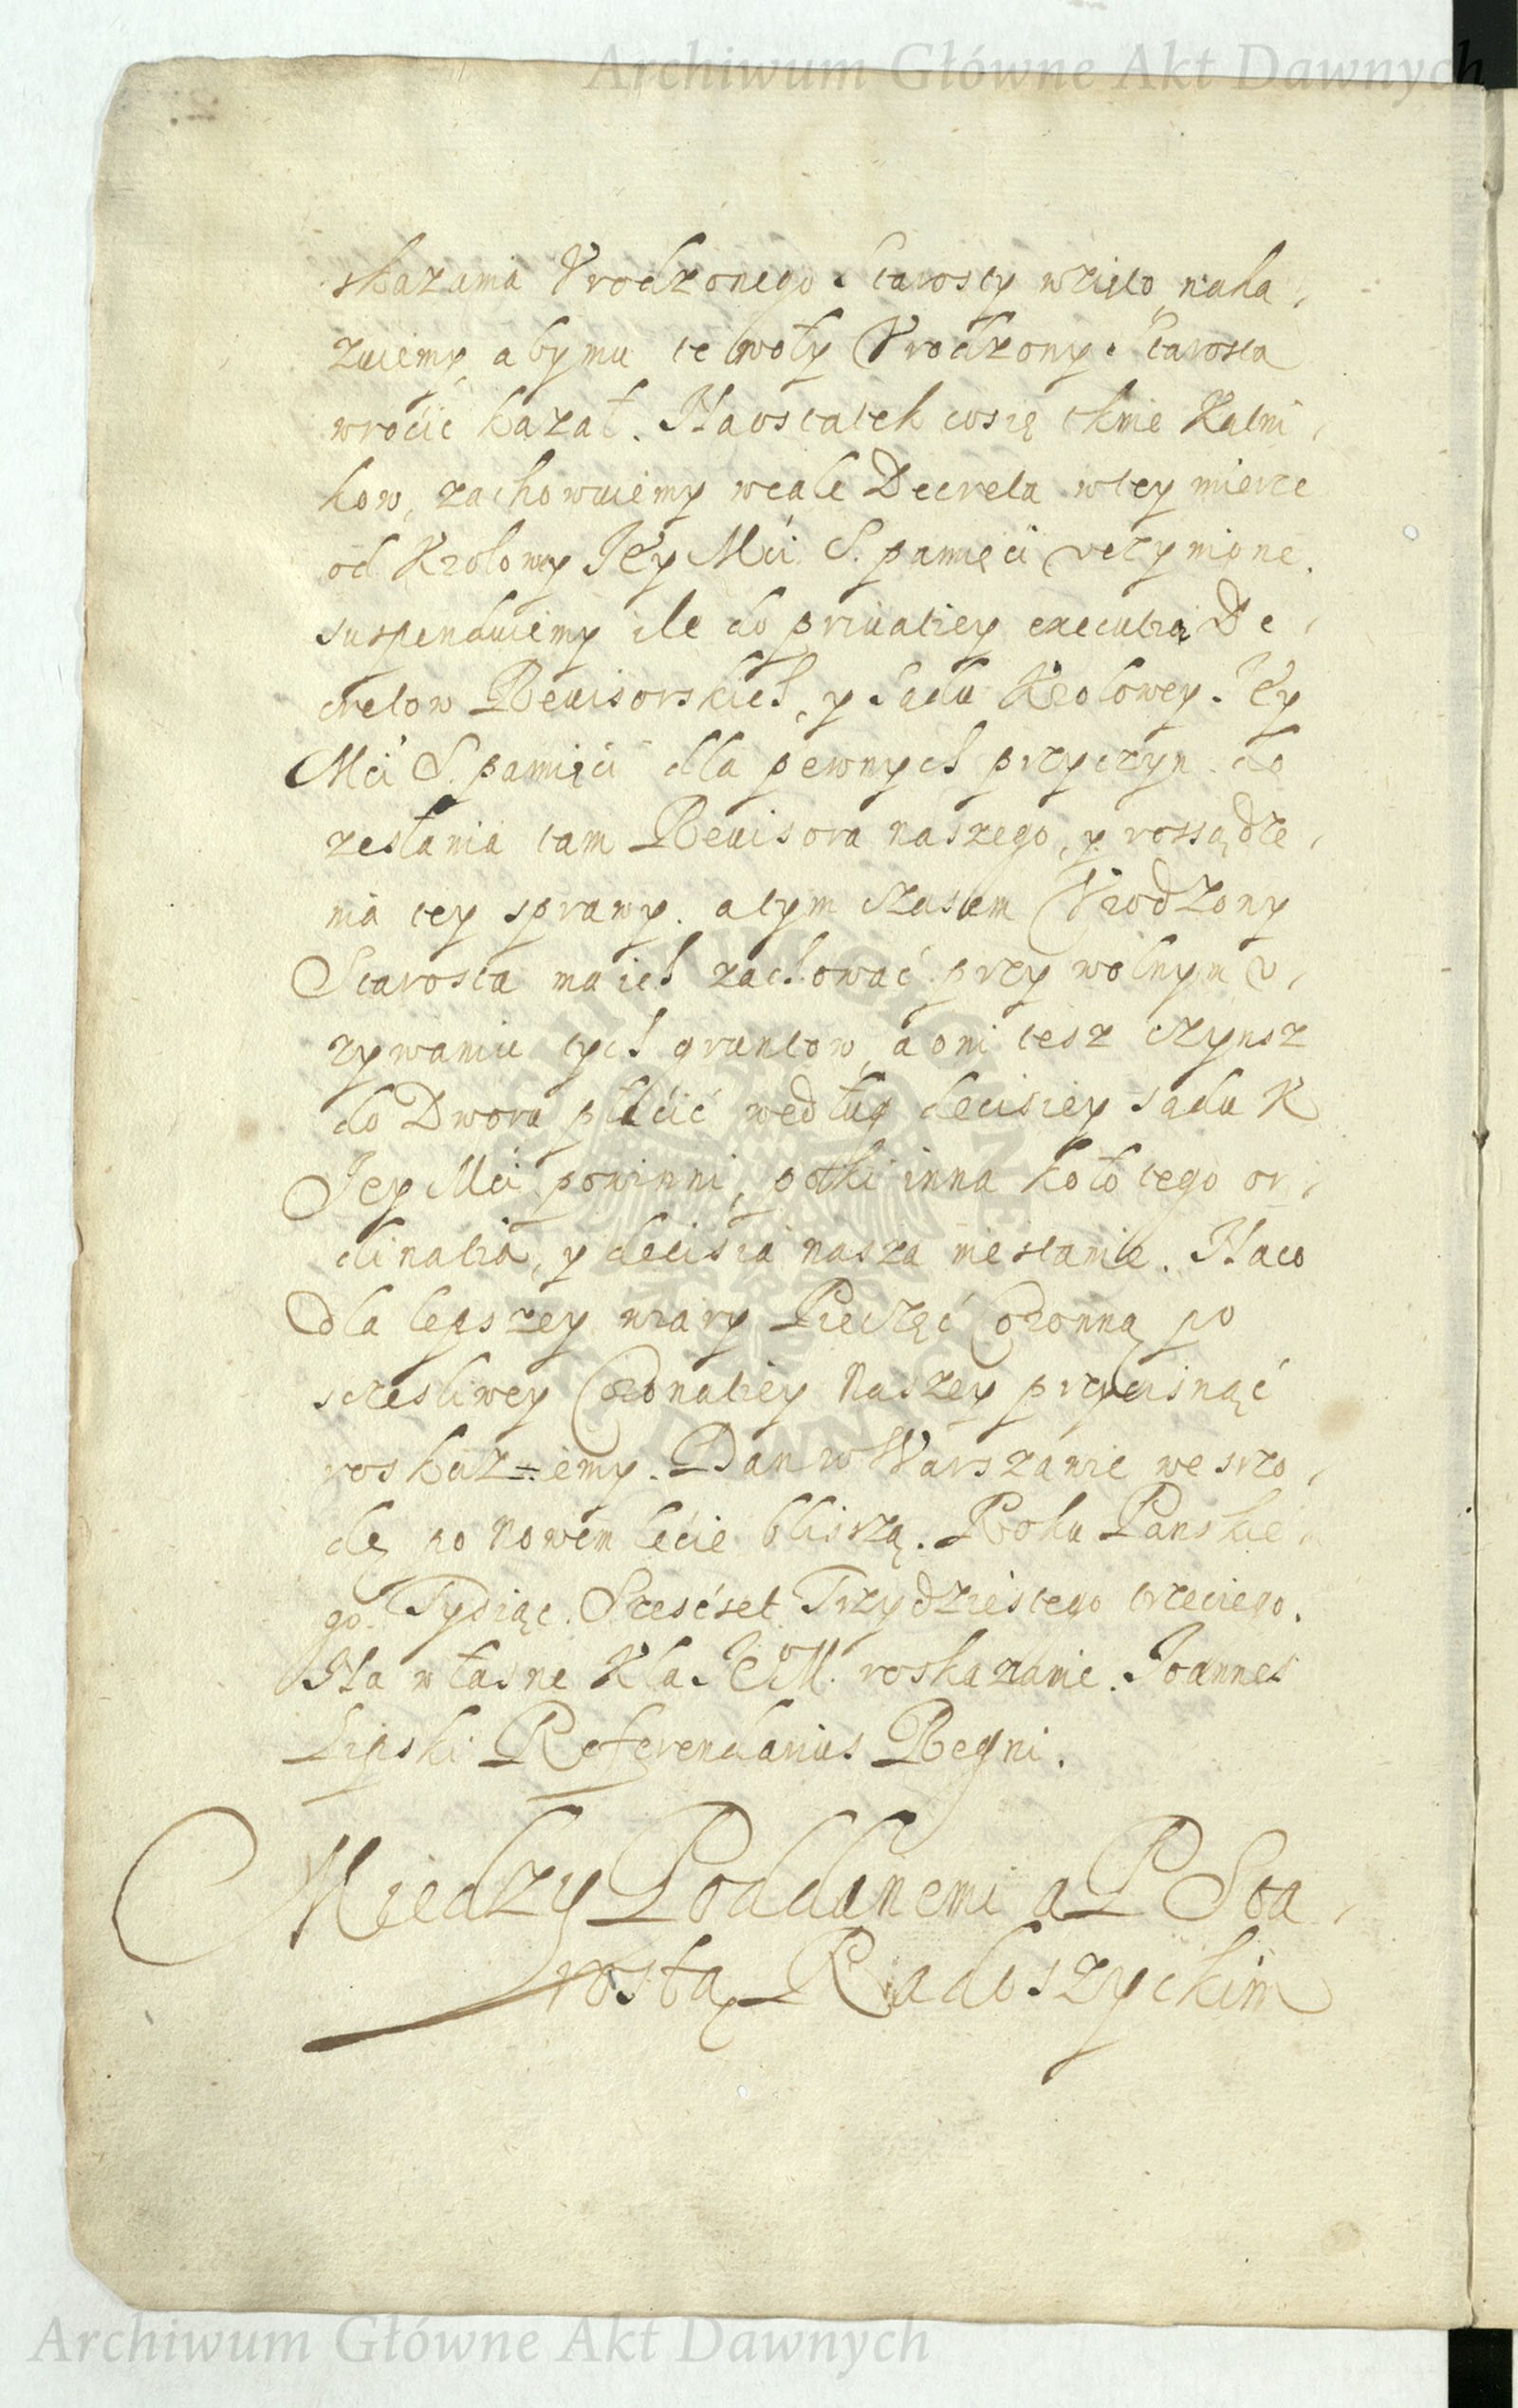 Archiwum Główne Akt Dawnych
skazania Vrodzonego Starosty wzięto, naka,
zuiemy, aby mu te woły Vrodzony Starosta
wrocić kazał. Naostatek co się tknie Kalni,
kow, zachowuiemy wcale Decreta w tey mierze
od Krolowy Jey Mći S. pamięci vczynione,
suspenduiemy ile do privatiey executią De,
cretow Revisorskich, y Sadu Krolowey Jey
Mći S. pamięci dla pewnych przyczyn do
zesłania tam Revisora naszego, y rossądze,
nia tey sprawy. a tym czasem Vrodzony
Starosta ma ich zachować przy wolnym v,
zywaniu tych gruntow, a oni tesz czynsz
do Dworu płacić według decisiey sadu K
Jey Mći powinni, poki inna koło tego or,
dinatia, y decisia nasza nie stanie. Na co
dla lepszey wiary Pieczęć Coronną po
sczesliwey Coronatiey naszey przycisnąć
roskazuiemy. Dan w Warszawie we srzo,
dę po nowem lecie bliszą. Roku Panskie,
go Tysiąc Szescset Trzydziestego trzeciego.
Na własne Kla JE M. roskazanie. Joannes
Lipski Referendarius Regni.
Miedzy Poddanemi a P Sta,
rostą Radoszyckim
Archiwum Główne Akt Dawnych